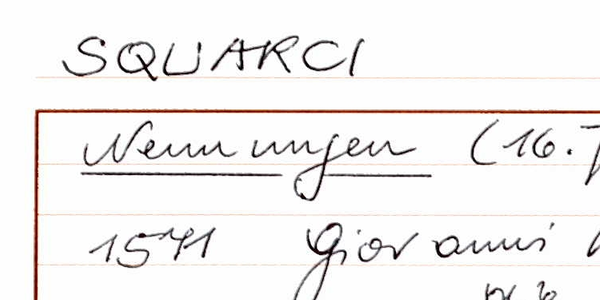 SQUARCI
Nennungen (16.
1571 Giovanni